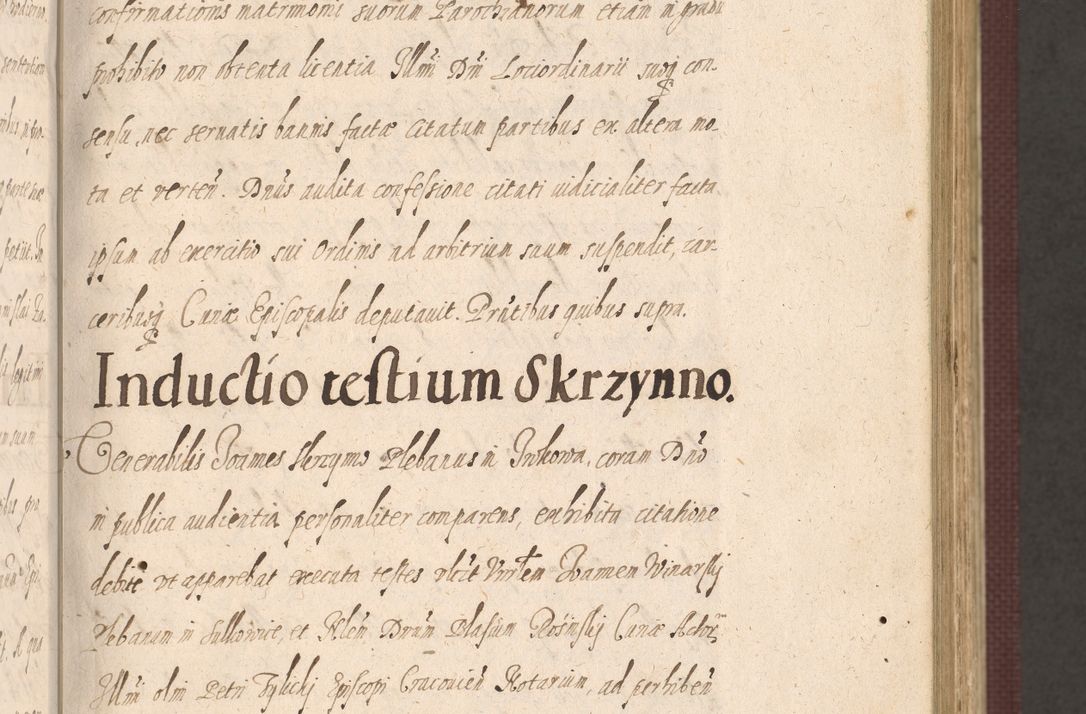 confirmationis matrimonii suorum Parochianorum etiam in gradu
prohibito non obtenta licentia Illmi Dni Lociordinarii suoq con-
sensu, nec seruatis bannis factae citatum partibus ex altera mo-
ta et verteń. Dnus audita confessione citati iudicialiter facta
ipsum ab exercitio sui Ordinis ad arbitrium suum suspendit, car-
ceribusq Curiae Episcopalis deputauit. Prntibus quibus supra.
Inductio testium Skrzynno.
Venerabilis Joannes Skrzynno Plebanus in Jnkowa, coram Dno
in publica audientia personaliter comparens, exhibita citatione
debite vt apparebat executa testes vlt Vnrlem Joannem Winarskj
Plebanum in Sullowice, et Nlem Dnum Blasium Rosinskj Curiae Actor
Illmi olim Petri Tylickj Episcopi Cracouień Notarium, ad perhibeń